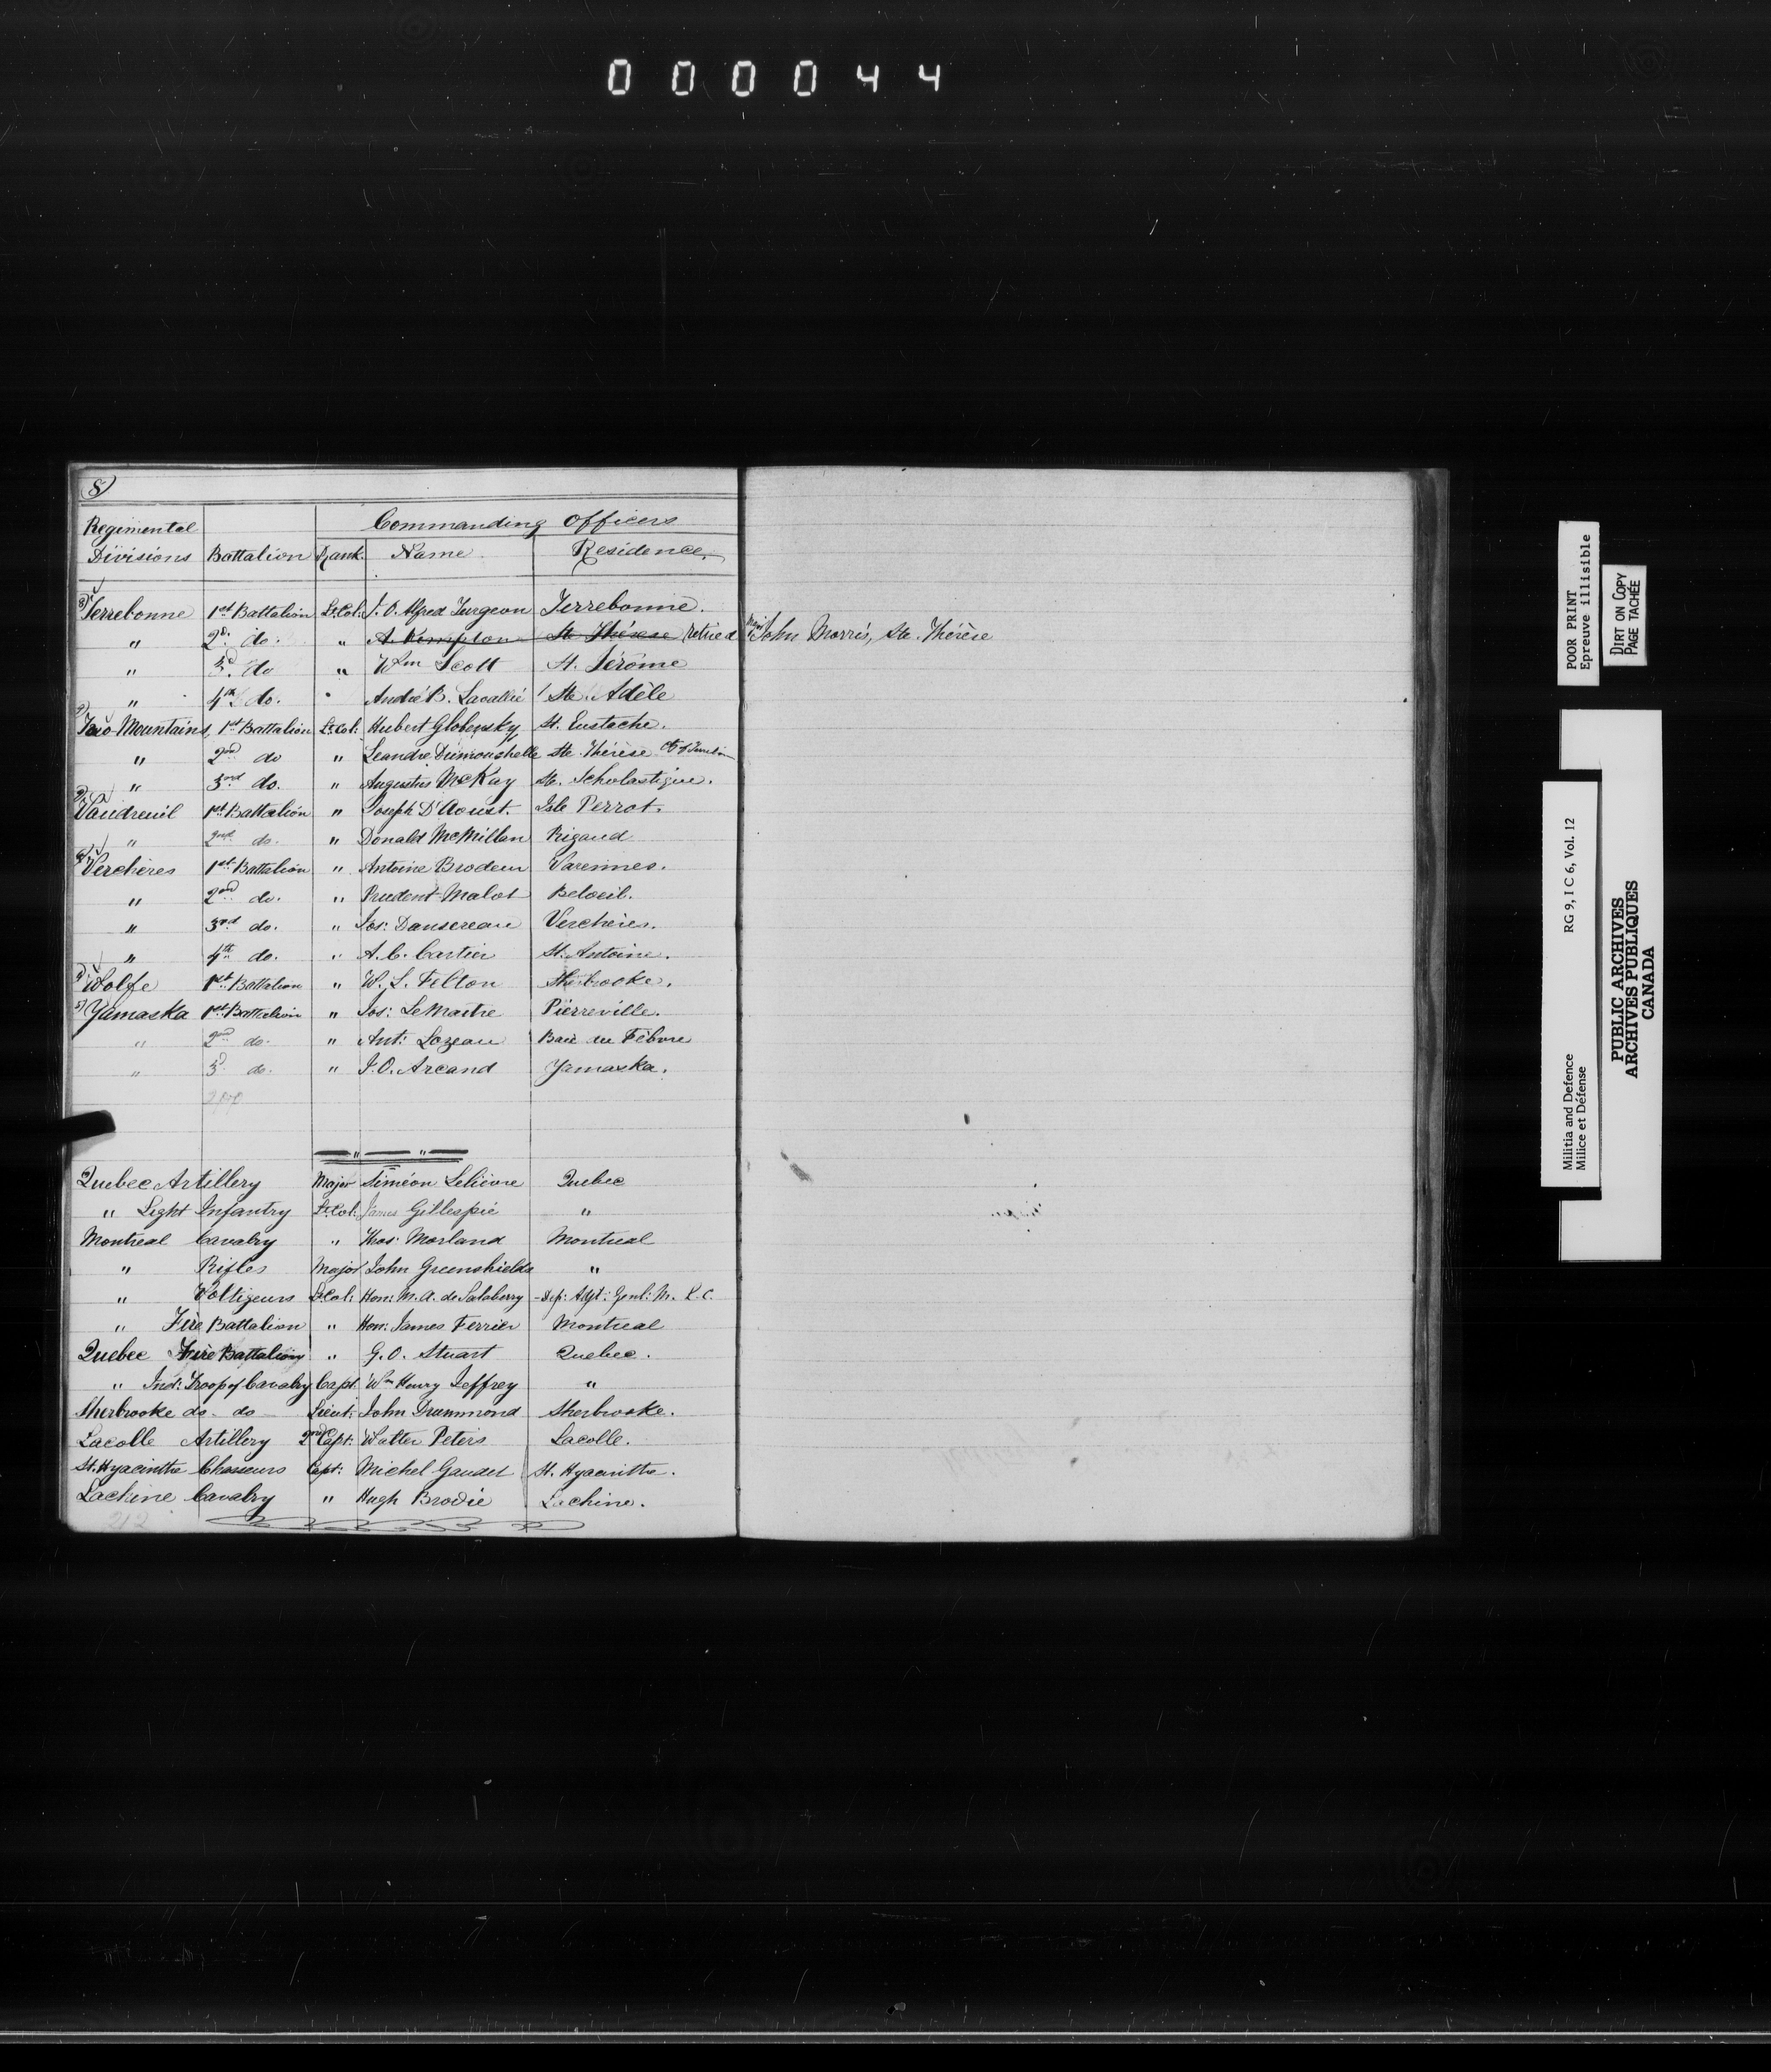 000044
8)
Regimental Commanding Officers
Divisions Battalion Rank Name Residence
Terrebonne 1st Battalion Lt. Col: J. O. Alfred Turgeon Terrebonne.
" 2d. do. " A. Kimpton Ste. Thérèse retired Major John Morris, Ste. Thérèse
" 3d. do " Wm Scott St. Jérôme
" 4th do. " André B. Lavallée Ste. Adèle
Two Mountains, 1st Battalion Lt. Col: Hubert Globensky St. Eustache.
" 2nd do " Leandre Dumouchelle Ste. Thérèse
" 3rd do. " Augustus McKay Ste. Scholastique.
Vaudreuil 1st Battalion " Joseph D'Aoust. Isle Perrot.
" 2nd do. " Donald McMillan Rigaud
Verchères 1st Battalion " Antoine Brodeur Varennes.
" 2nd do. " Prudent Malot Beloeil.
" 3rd do. " Jos: Dansereau Verchères.
" 4th do. " A. C. Cartier St. Antoine.
Wolfe 1st Battalion " W. L. Felton Sherbrooke.
Yamaska 1st Battalion " Jos: LeMaitre Pierreville.
" 2nd do. " Ant: Lozeau Baie du Fèbvre
" 3d do. " J. O. Arcand Yamaska.
Quebec Artillery Major Siméon Lelièvre Quebec
" Light Infantry Lt. Col: James Gillespie "
Montreal Cavalry " Thos: Morland Montreal
" Rifles Major John Greenshields "
" Voltigeurs Lt. Col: Hon: M. A. de Salaberry - Dep: Adjt: Genl: M. L. C.
" Fire Battalion " Hon: James Ferrier Montreal
Quebec Fire Battalion " G. O. Stuart Quebec.
" Ind: Troop of Cavalry Capt. Wm Henry Jeffrey "
Sherbrooke do - do Lieut: John Drummond Sherbrooke.
Lacolle Artillery 2nd Capt: Walter Peters Lacolle.
St. Hyacinthe Chasseurs Capt: Michel Gaudet St. Hyacinthe.
Lachine Cavalry " Hugh Brodie Lachine.
212
POOR PRINT
Epreuve illisible
DIRT ON COPY
PAGE TACHÉE
Militia and Defence RG 9, I C 6, Vol. 12
Milice et Défense
PUBLIC ARCHIVES
ARCHIVES PUBLIQUES
CANADA